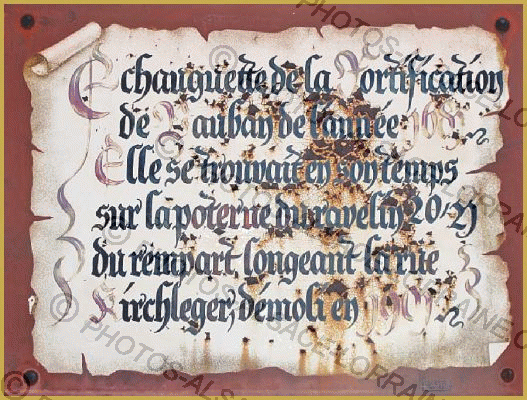 Echauguette de la Fortification
de Vauban de l'année
Elle se trouvait en son temps
sur la poterne du ravelin 20-21
du rempart, longeant la rue
Kirchleger, démoli en
© PHOTOS-ALSACE-LORRAINE.COM